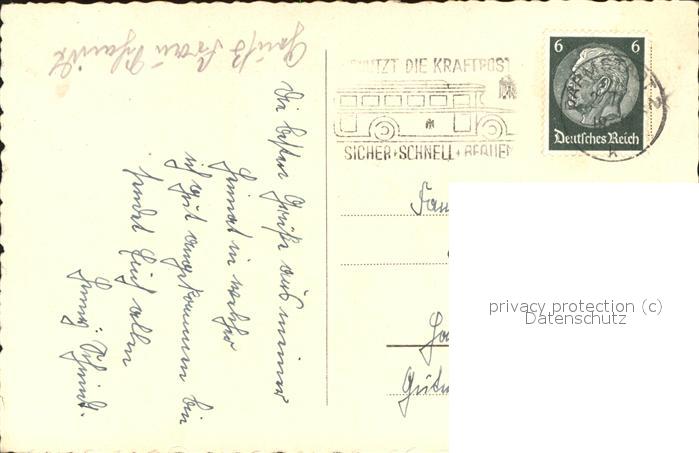 Gruß Frau Schmidt
Die besten Grüße aus meiner
Heimat in welcher
ich gut angekommen bin
sendet Euch allen
Henny Schmidt.
BENUTZT DIE KRAFTPOST
SICHER+SCHNELL+BEQUEM
6 6
Deutsches Reich
Fam
Güter
privacy protection (c)
Datenschutz